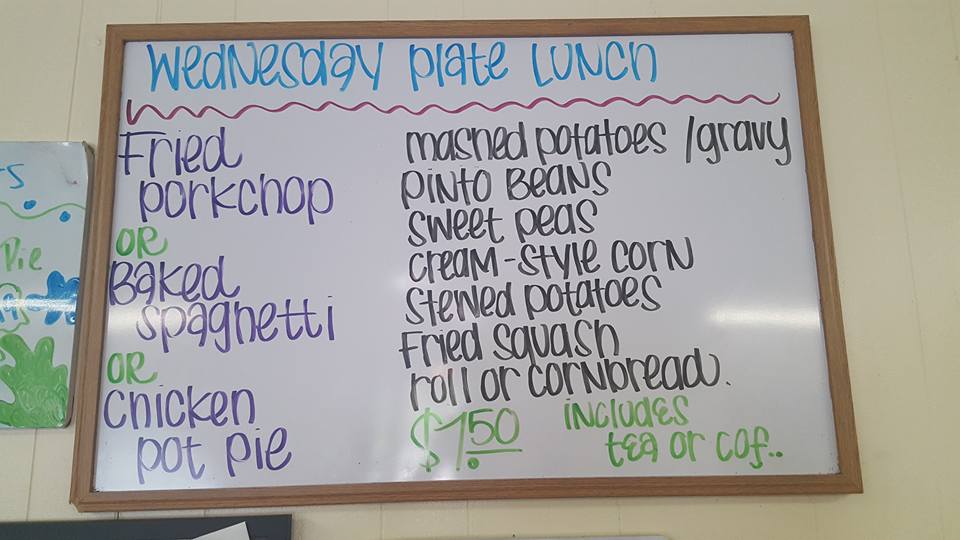 Wednesday Plate Lunch
Fried
porkchop
OR
Baked
spaghetti
OR
Chicken
pot pie
mashed potatoes /gravy
Pinto Beans
sweet peas
cream-style corn
Stewed potatoes
Fried Squash
roll or cornbread.
$7.50
includes
tea or cof..
s
Pie